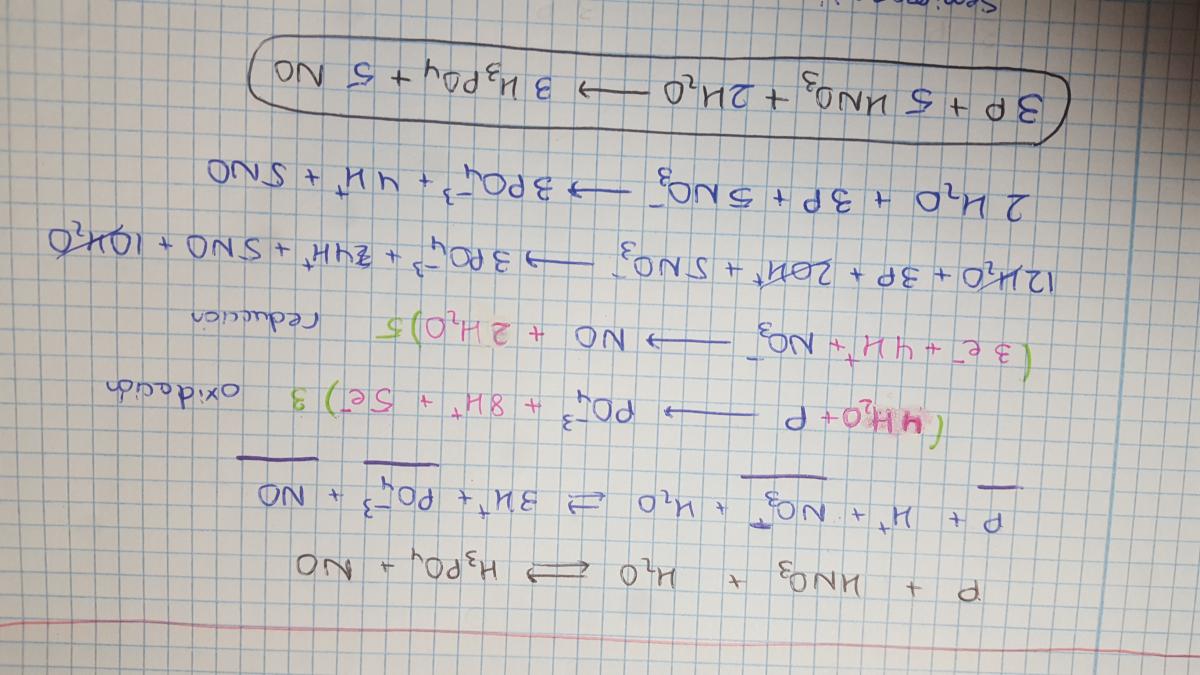 P + HNO₃ + H₂O ⇌ H₃PO₄ + NO
P + H⁺ + NO₃⁻ + H₂O ⇌ 3H⁺ + PO₄⁻³ + NO
(4H₂O + P → PO₄⁻³ + 8H⁺ + 5e⁻) 3 oxidación
(3e⁻ + 4H⁺ + NO₃⁻ → NO + 2H₂O) 5 reducción
12H₂O + 3P + 20H⁺ + 5NO₃⁻ → 3PO₄⁻³ + 24H⁺ + 5NO + 10H₂O
2H₂O + 3P + 5NO₃⁻ → 3PO₄⁻³ + 4H⁺ + 5NO
3P + 5HNO₃ + 2H₂O → 3H₃PO₄ + 5NO